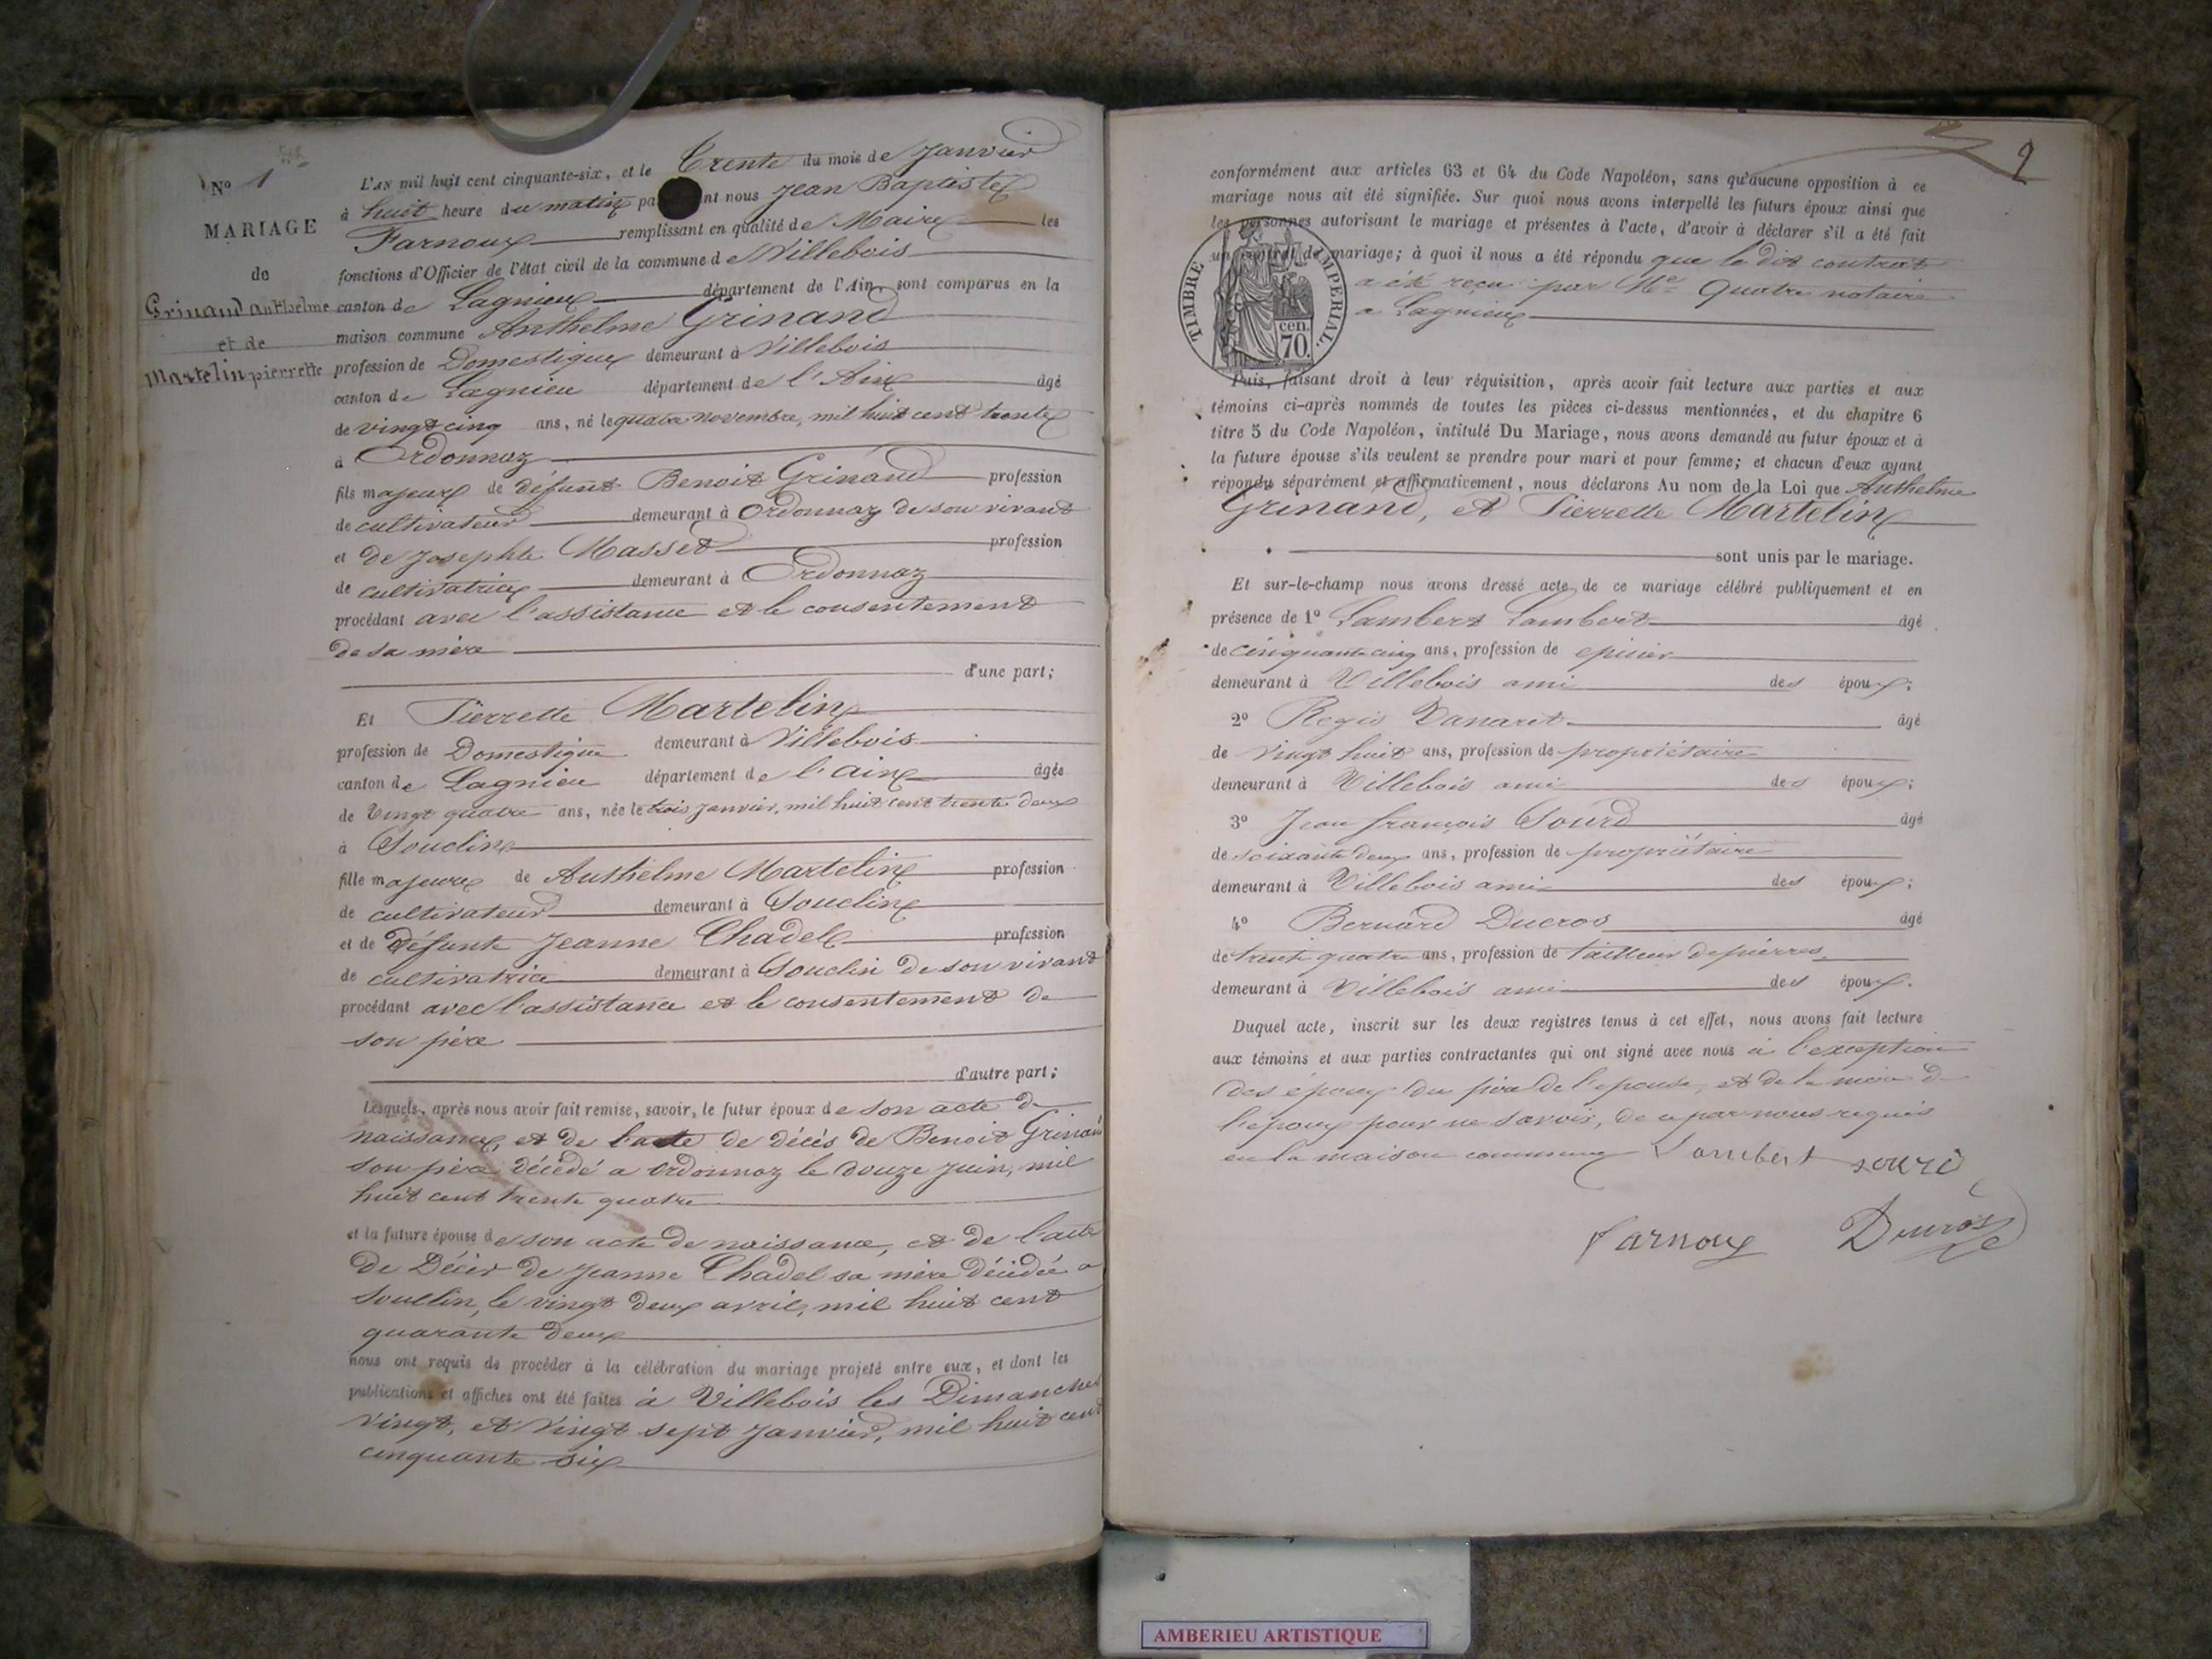 No 1
MARIAGE
de
Grinand anthelme
et de
Martelin pierrette
L'AN mil huit cent cinquante-six, et le Trente du mois de Janvier
à huit heure du matin pa nt nous Jean Baptiste
Farnoux remplissant en qualité de Maire les
fonctions d'Officier de l'état civil de la commune de Villebois
canton de Lagnieu département de l'Ain, sont comparus en la
maison commune Anthelme Grinand
profession de Domestique demeurant à Villebois
canton de Lagnieu département de l'Ain âgé
de vingt cinq ans, né le quatre novembre, mil huit cent trente
à Ordonnaz
fils majeur de défunt Benoit Grinand profession
de cultivateur demeurant à Ordonnaz de son vivant
et de Josephte Masset profession
de cultivatrice demeurant à Ordonnaz
procédant avec l'assistance et le consentement
de sa mère
d'une part;
Et Pierrette Martelin
profession de Domestique demeurant à Villebois
canton de Lagnieu département de l'ain âgée
de Vingt quatre ans, née le trois janvier, mil huit cent trente deux
à Souclin
fille majeure de Anthelme Martelin profession
de cultivateur demeurant à Souclin
et de défunte Jeanne Chadel profession
de cultivatrice demeurant à Souclin de son vivant
procédant avec l'assistance et le consentement de
son père
d'autre part;
Lesquels, après nous avoir fait remise, savoir, le futur époux de son acte de
naissance, et de l'acte de décès de Benoit Grinand
son père décédé a ordonnaz le douze juin, mil
huit cent trente quatre
et la future épouse de son acte de naissance, et de l'acte
de Décès de Jeanne Chadel sa mère décédée a
Souclin, le vingt deux avril, mil huit cent
quarante deux
nous ont requis de procéder à la célébration du mariage projeté entre eux, et dont les
publications et affiches ont été faites à Villebois les Dimanches
vingt, et vingt sept Janvier, mil huit cent
cinquante six
2
conformément aux articles 63 et 64 du Code Napoléon, sans qu'aucune opposition à ce
mariage nous ait été signifiée. Sur quoi nous avons interpellé les futurs époux ainsi que
les personnes autorisant le mariage et présentes à l'acte, d'avoir à déclarer s'il a été fait
un contrat de mariage; à quoi il nous a été répondu que le dit contrat
a été reçu par Me Quatre notaire
a Lagnieu
TIMBRE IMPERIAL.
cen.
70.
Puis, faisant droit à leur réquisition, après avoir fait lecture aux parties et aux
témoins ci-après nommés de toutes les pièces ci-dessus mentionnées, et du chapitre 6
titre 5 du Code Napoléon, intitulé Du Mariage, nous avons demandé au futur époux et à
la future épouse s'ils veulent se prendre pour mari et pour femme; et chacun d'eux ayant
répondu séparément et affirmativement, nous déclarons Au nom de la Loi que Anthelme
Grinand, et Pierrette Martelin
sont unis par le mariage.
Et sur-le-champ nous avons dressé acte de ce mariage célébré publiquement et en
présence de 1o Lambert Lambert âgé
de cinquante cinq ans, profession de epicier
demeurant à Villebois ami des époux;
2o Regis Danaret âgé
de vingt huit ans, profession de propriétaire
demeurant à Villebois ami des époux;
3o Jean françois Sourd âgé
de soixante deux ans, profession de propriétaire
demeurant à Villebois ami des époux;
4o Bernard Ducros âgé
de trente quatre ans, profession de tailleur de pierres
demeurant à Villebois ami des époux.
Duquel acte, inscrit sur les deux registres tenus à cet effet, nous avons fait lecture
aux témoins et aux parties contractantes qui ont signé avec nous à l'exception
des époux du père de l'epouse, et de la mère de
l'epoux pour ne savoir, de ce par nous requis
en la maison commune Lambert sourd
Farnoux Ducros
AMBERIEU ARTISTIQUE